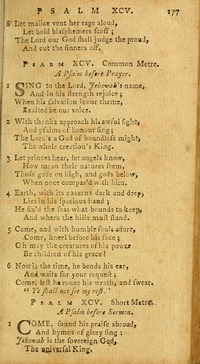 PSALM XCV. 177
8 Let malice vent her rage aloud,
Let bold blasphemers scoff;
The Lord our God shall judge the proud,
And cut the sinners off.
PSALM XCV. Common Metre.
A Psalm before Prayer.
1 SING to the Lord, Jehovah's name,
And in his strength rejoice;
When his salvation is our theme,
Exalted be our voice.
2 With thanks approach his awful sight,
And psalms of honour sing;
The Lord's a God of boundless might,
The whole creation's King.
3 Let princes hear, let angels know,
How mean their natures seem,
Those gods on high, and gods below,
When once compar'd with him.
4 Earth, with its caverns dark and deep,
Lies in his spacious hand;
He fix'd the seas what bounds to keep,
And where the hills must stand.
5 Come, and with humble souls adore,
Come, kneel before his face;
Oh may the creatures of his power
Be children of his grace!
6 Now is the time, he bends his ear,
And waits for your request;
Come, lest he rouse his wrath, and swear,
"Ye shall not see my rest."
PSALM XCV. Short Metre.
A Psalm before Sermon.
1 COME, sound his praise abroad,
And hymns of glory sing:
Jehovah is the sovereign God,
The universal King.